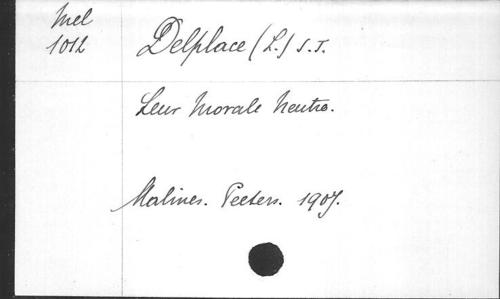 Mel
1012
Delplace (L.) S.J.
Leur Morale Neutre.
Malines. Peeters. 1907.